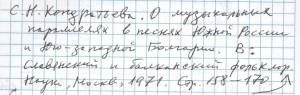 С.Н. Кондратьева. О музыкальных
параллелях в песнях Южной России
и Юго-западной Болгарии. В:
Славянский и балканский фольклор.
Наука, Москва, 1971. Стр. 158-170